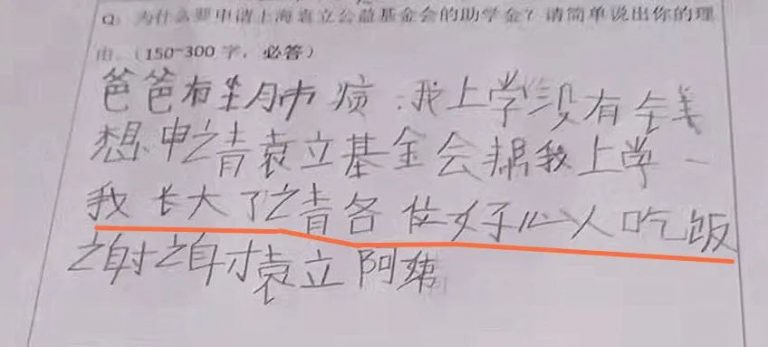 Q: 为什么要申请上海袁立公益基金会的助学金?请简单说出你的理
由。(150-300 字,必答)
爸爸有尘肺病.我上学没有钱
想申请袁立基金会帮我上学
我长大了请各位好心人吃饭
谢谢袁立阿姨